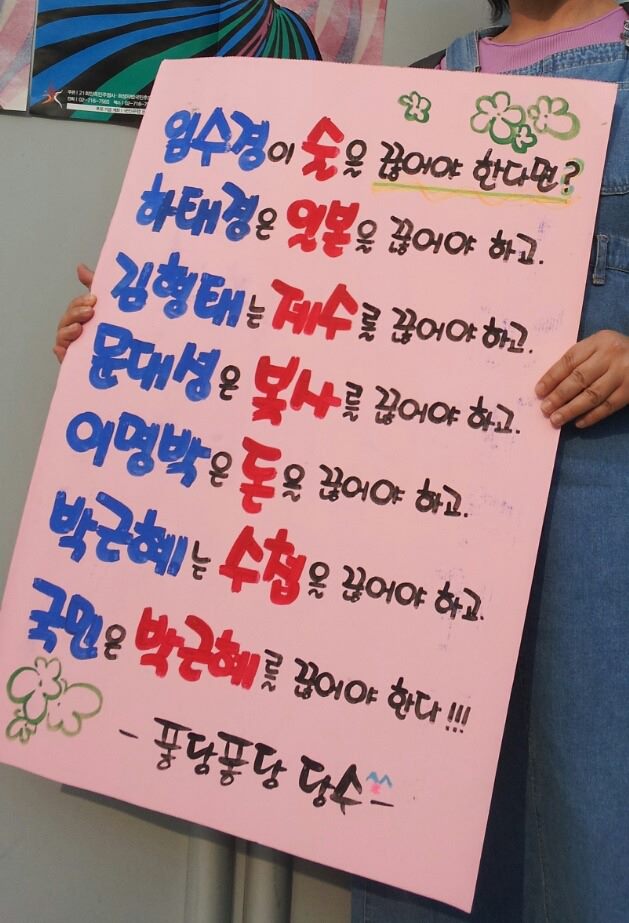 임수경이 술을 끊어야 한다면?
하태경은 일본을 끊어야 하고.
김형태는 제수를 끊어야 하고.
문대성은 복사를 끊어야 하고.
이명박은 돈을 끊어야 하고.
박근혜는 수첩을 끊어야 하고.
국민은 박근혜를 끊어야 한다!!!
- 퐁당퐁당 당수 -